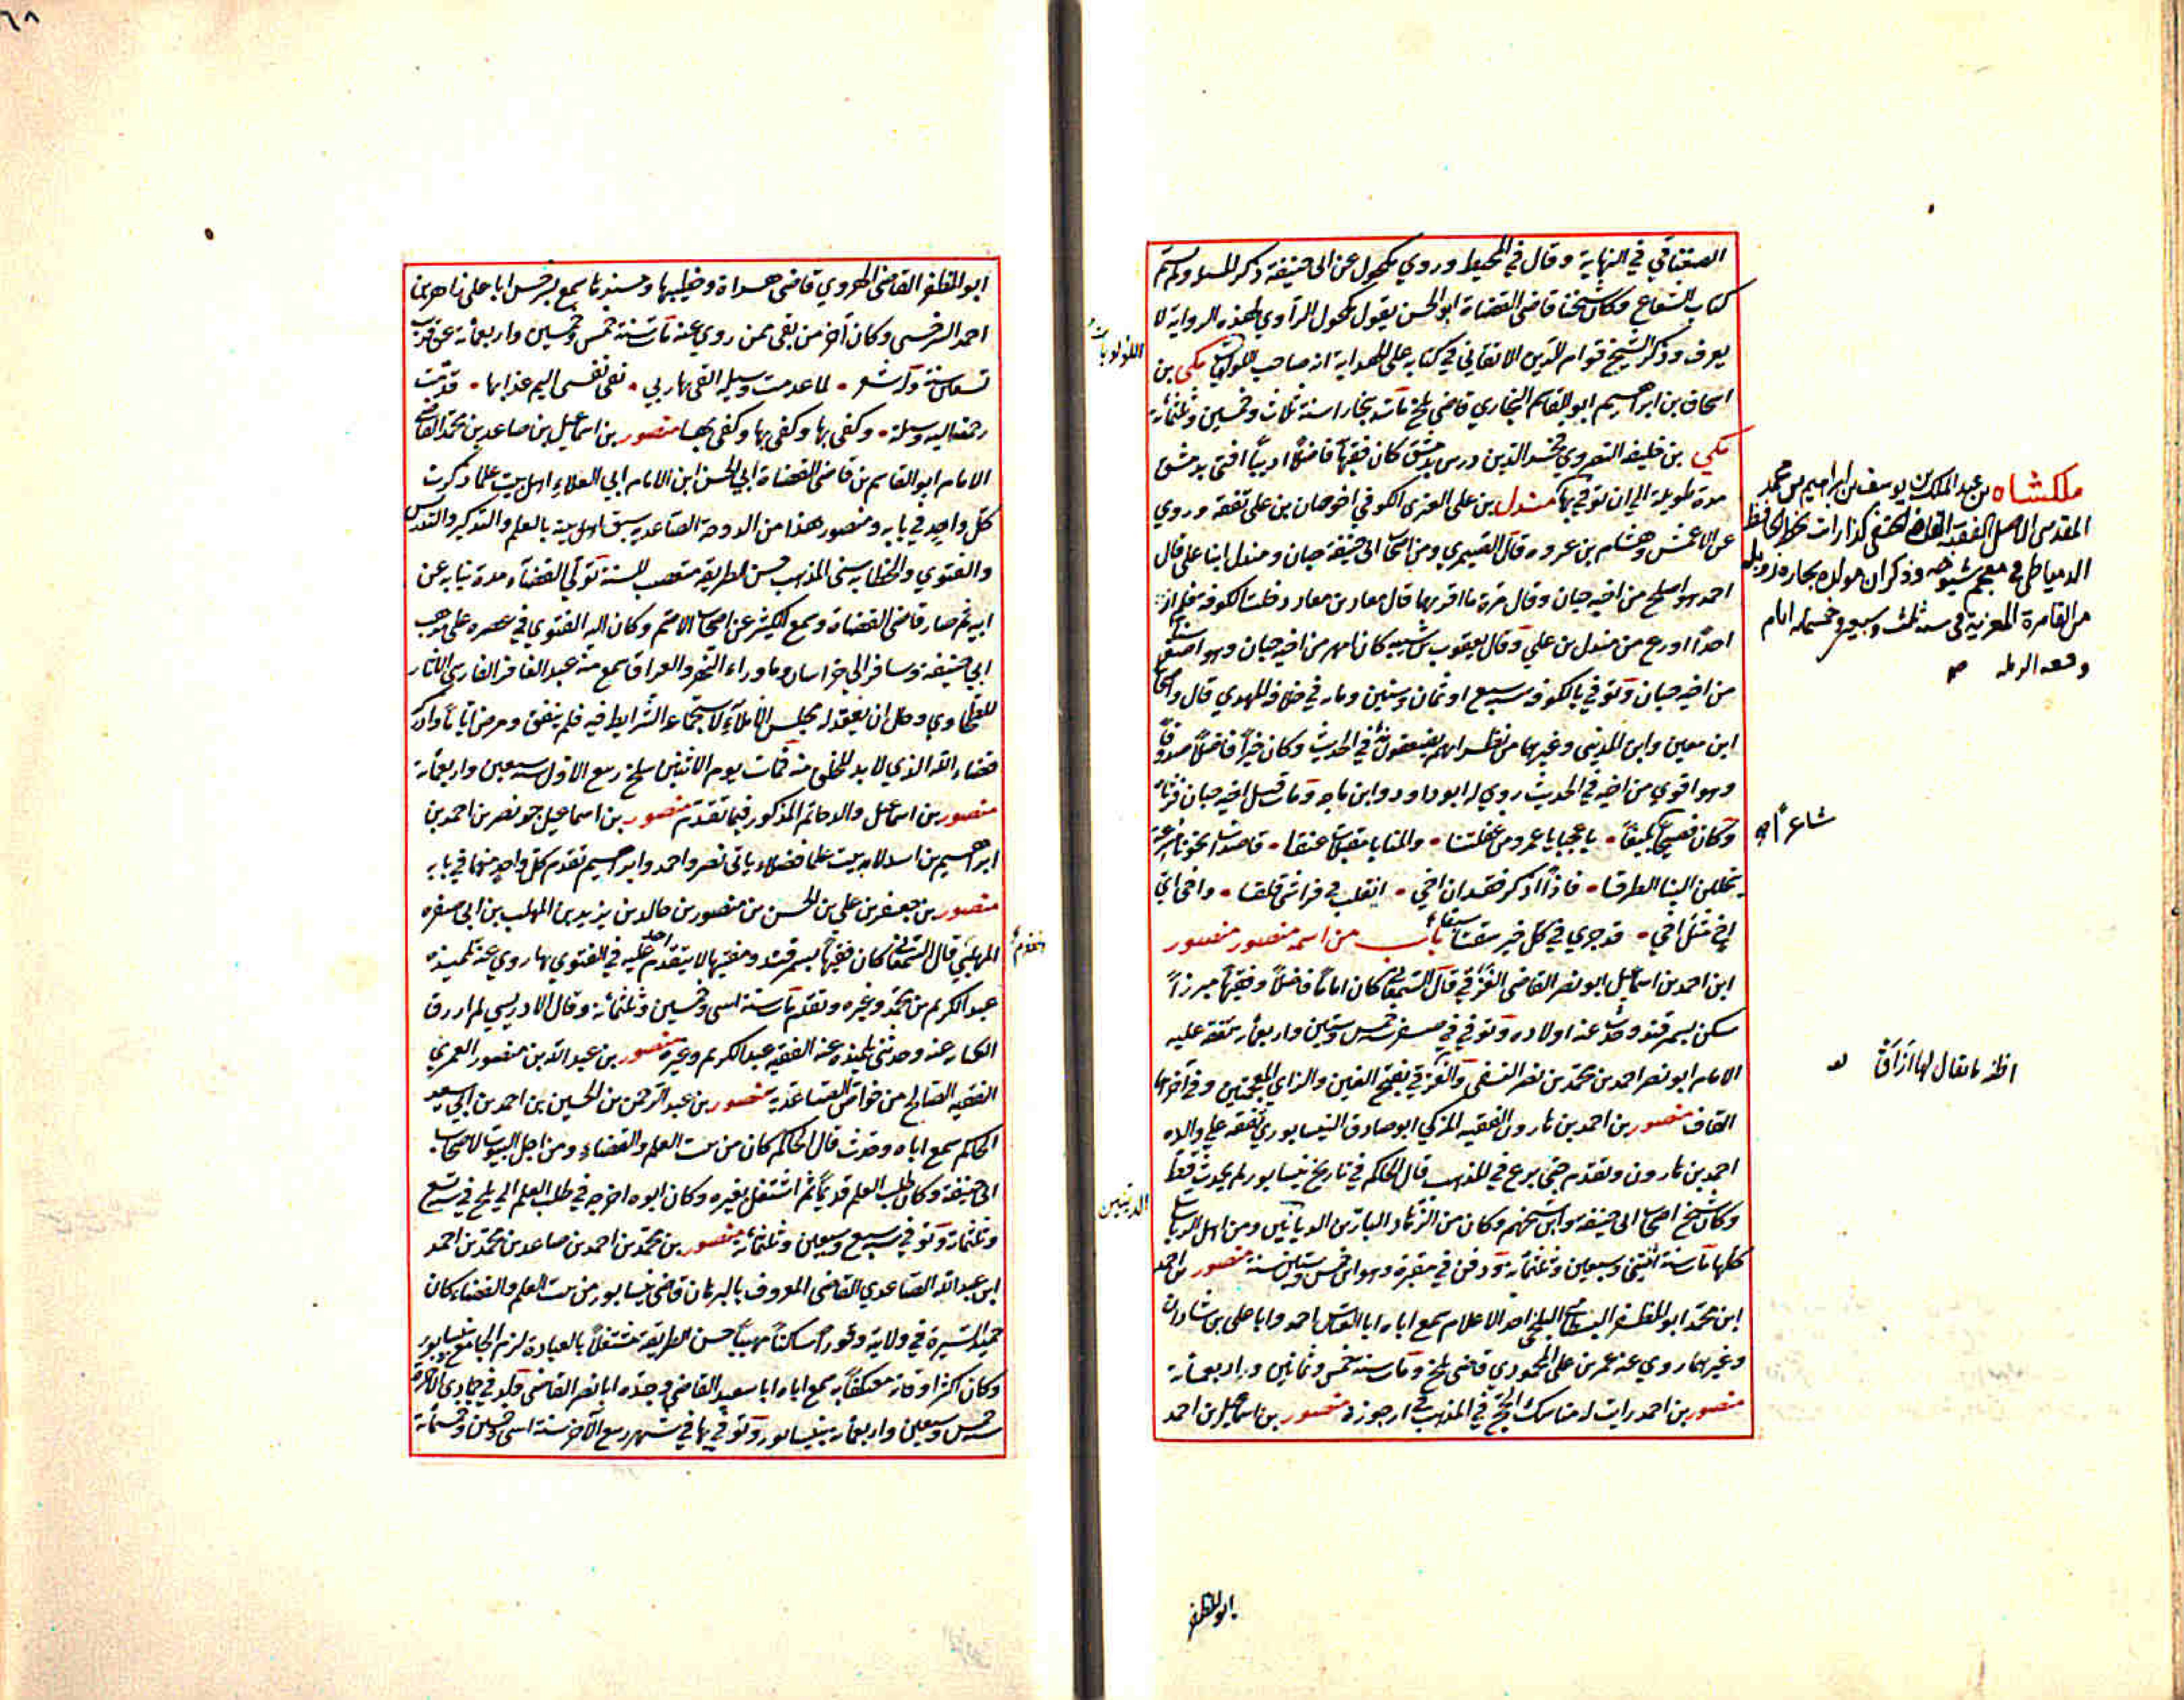 الصغناقي في النهاية وقال في المحيط وروي مكحول عن ابي حنيفة ذكر
كتاب الشعاع وكان شيخنا قاضي القضاة ابو الحسن يقول مكحول الراوي لهذه الرواية لا
يعرف وذكر الشيخ قوام الدين الاتقاني في كتابه على الهداية انه صاحب اللولويات مكي بن
اللولويات
اسحاق بن ابراهيم ابو القاسم البخاري قاضي بلخ مات ببخارا سنة ثلاث وخمسين وثلثمائة
مكي بن خليفة البصروي فخر الدين درس بدمشق كان فقيها فاضلا اديبا افتى بدمشق
مدة طويلة الى ان توفي بها مندل بن علي العنزي الكوفي اخو حبان بن علي تفقه وروي
عن الاعمش وهشام بن عروه قال الصيمري ومن اصحاب ابي حنيفة حبان ومندل ابنا علي قال
احمد هو اصلح من اخيه حبان وقال مرة ما اقربهما قال معاذ بن معاذ دخلت الكوفة فلم ار
احدا اورع من مندل بن علي وقال يعقوب بن شيبه كان اشهر من اخيه حبان وهو اصغر سنا
من اخيه حبان وتوفي بالكوفة سنة سبع او ثمان وستين ومايه في خلافة المهدي قال واصحابنا
ابن معين وابن المديني وغيرهما من نظرائهم يضعفونه في الحديث وكان خيرا فاضلا صدوقا
وهو اقوي من اخيه في الحديث روي له ابو داود وابن ماجه ومات قبل اخيه حبان فرثاه
وكان فصيحا بليغا • يا عجبا يا عمرو من غفلتنا • والمنايا مقبلات عنقا • قاصدات نحونا مسرعة
شاعرا
يتخللن الينا الطرقا • فاذا اذكر فقدان اخي • انقلب في فراشي قلقا • واخي اي
اخ مثل اخي • قد جري في كل خير سبقا باب من اسمه منصور منصور
ابن احمد بن اسماعيل ابو نصر القاضي الغزقي قال السمعاني كان اماما فاضلا وفقيها مبرزا
سكن بسمرقند وحدث عنه اولاده وتوفي في صفر سنة خمس وستين واربعمائة تفقه عليه
الامام ابو نصر احمد بن محمد بن نصر النسفي والغزقي بفتح الغين والزاي المعجمتين وفي اخرها
القاف منصور بن احمد بن هارون الفقيه المزكي ابو صادق النيسابوري تفقه على والده
احمد بن هارون وتقدم حتى برع في المذهب قال الحاكم في تاريخ نيسابور لم يحدث قط
وكان شيخ اصحاب ابي حنيفة وابن شيخهم وكان من الزهاد البازين
كلها مات سنة اثنتين وسبعين وثلثمائة ودفن في مقبرة وهو ابن خمس وستين سنة منصور بن احمد
ابن محمد ابو المظفر البسطامي البلخي احد الاعلام سمع اباه ابا العباس احمد وابا علي بن شاذان
وغيرهما روي عنه عمر بن علي المحمودي قاضي بلخ ومات سنة خمس وثمانين واربعمائة
منصور بن احمد رايت له مناسك الحج في المذهب ارجوزة منصور بن اسماعيل بن احمد
ملكشاه بن عبد الملك بن يوسف بن ابراهيم بن محمد
المقدسي الاصل الفقيه القاضي الحنفي كذا رايت بخط الحافظ
الدمياطي في معجم شيوخه وذكر ان مولده بحاره زويله
من القاهرة المعزية في سنة ثلث وسبعين وخمسمايه ايام
وقعه الرمله
اظنه ما يقال لها ازاق
ابو المظفر
٦٨
ابو المظفر القاضي الهروي قاضي هراة وخطيبها ومسندها سمع بسرخس ابا علي زاهر بن
احمد السرخسي وكان آخر من بقي ممن روي عنه مات سنة خمس وخمسين واربعمائة عن قريب
تسعين سنة وانشد • لما عدمت وسيلة القى بها ربي • تقي نفسي اليم عذابها • قدمت
رحمته اليه وسيلة • وكفى بها وكفى بها وكفى بها منصور بن اسماعيل بن صاعد بن محمد القاضي
الامام ابو القاسم بن قاضي القضاة ابي الحسن ابن الامام ابي العلاء اهل بيت علماء ذكرت
كل واحد في بابه ومنصور هذا من الدوحة الصاعدية سبق اهل بيته بالعلم والتذكير والتدريس
والفتوي والخطابة سخي المذهب حسن الطريقة متعصب للسنة تولي القضاء مدة نيابة عن
ابيه ثم صار قاضي القضاة وسمع الكثير عن اصحاب الاصم وكان اليه الفتوي في عصره على مذهب
ابي حنيفة وسافر الى خراسان وما وراء النهر والعراق سمع منه عبد الغافر الفارسي الاثار
للطحاوي وكان ان يعقد له مجلس الاملاء لاستجماع الشرايط فيه فلم يتفق ومرض اياما وادركه
قضاء الله الذي لا بد للخلق منه فمات يوم الاثنين سلخ ربيع الاول سنة سبعين واربعمائة
منصور بن اسماعيل والد حاتم المذكور فيما تقدم منصور بن اسماعيل جد نصر بن احمد بن
ابراهيم بن اسد لاهل بيت علماء فضلاء ياتي نصر واحمد وابراهيم تقدم كل واحد منهما في بابه
منصور بن جعفر بن علي بن الحسن بن منصور بن خالد بن يزيد بن المهلب بن ابي صفره
المهلبي قال السمعاني كان فقيها بسمرقند ومفتيها لا يتقدم احد عليه في الفتوي بها روي عنه تلميذه
عبد الكريم بن محمد وغيره وتقدم مات سنة اثنتي وخمسين وثلثمائة وقال الادريسي لم ارزق
الكتابة عنه وحدثني تلميذه عنه الفقيه عبد الكريم وغيره منصور بن عبد الله بن منصور العمري
الفقيه الصالح من خواص الصاعدية منصور بن عبد الرحمن بن الحسين بن احمد بن ابي سعيد
الحاكم سمع اباه وحدث قال الحاكم كان من بيت العلم والقضاء ومن اجل البيوت لاصحاب
ابي حنيفة وكان طلب العلم قديما ثم اشتغل بغيره وكان ابوه اخرجه في طلب العلم الى بلخ في سنة تسع
وثلثمائة وتوفي في سنة سبع وسبعين وثلثمائة منصور بن محمد بن احمد بن صاعد بن محمد بن احمد
ابن عبد الله الصاعدي القاضي المعروف بالبرهان قاضي نيسابور من بيت العلم والقضاء كان
حميد السيرة في ولايته وقورا ساكنا مهيبا حسن الطريقة مشتغلا بالعبادة لزم الجامع بنيسابور
وكان اكثر اوقاته معتكفا به سمع اباه ابا سعيد القاضي وجده ابا نصر القاضي ولد في جمادي الاخرة
سنة خمس وسبعين واربعمائة بنيسابور وتوفي بها في شهر ربيع الآخر سنة اثنتي وخمسين وخمسمائة